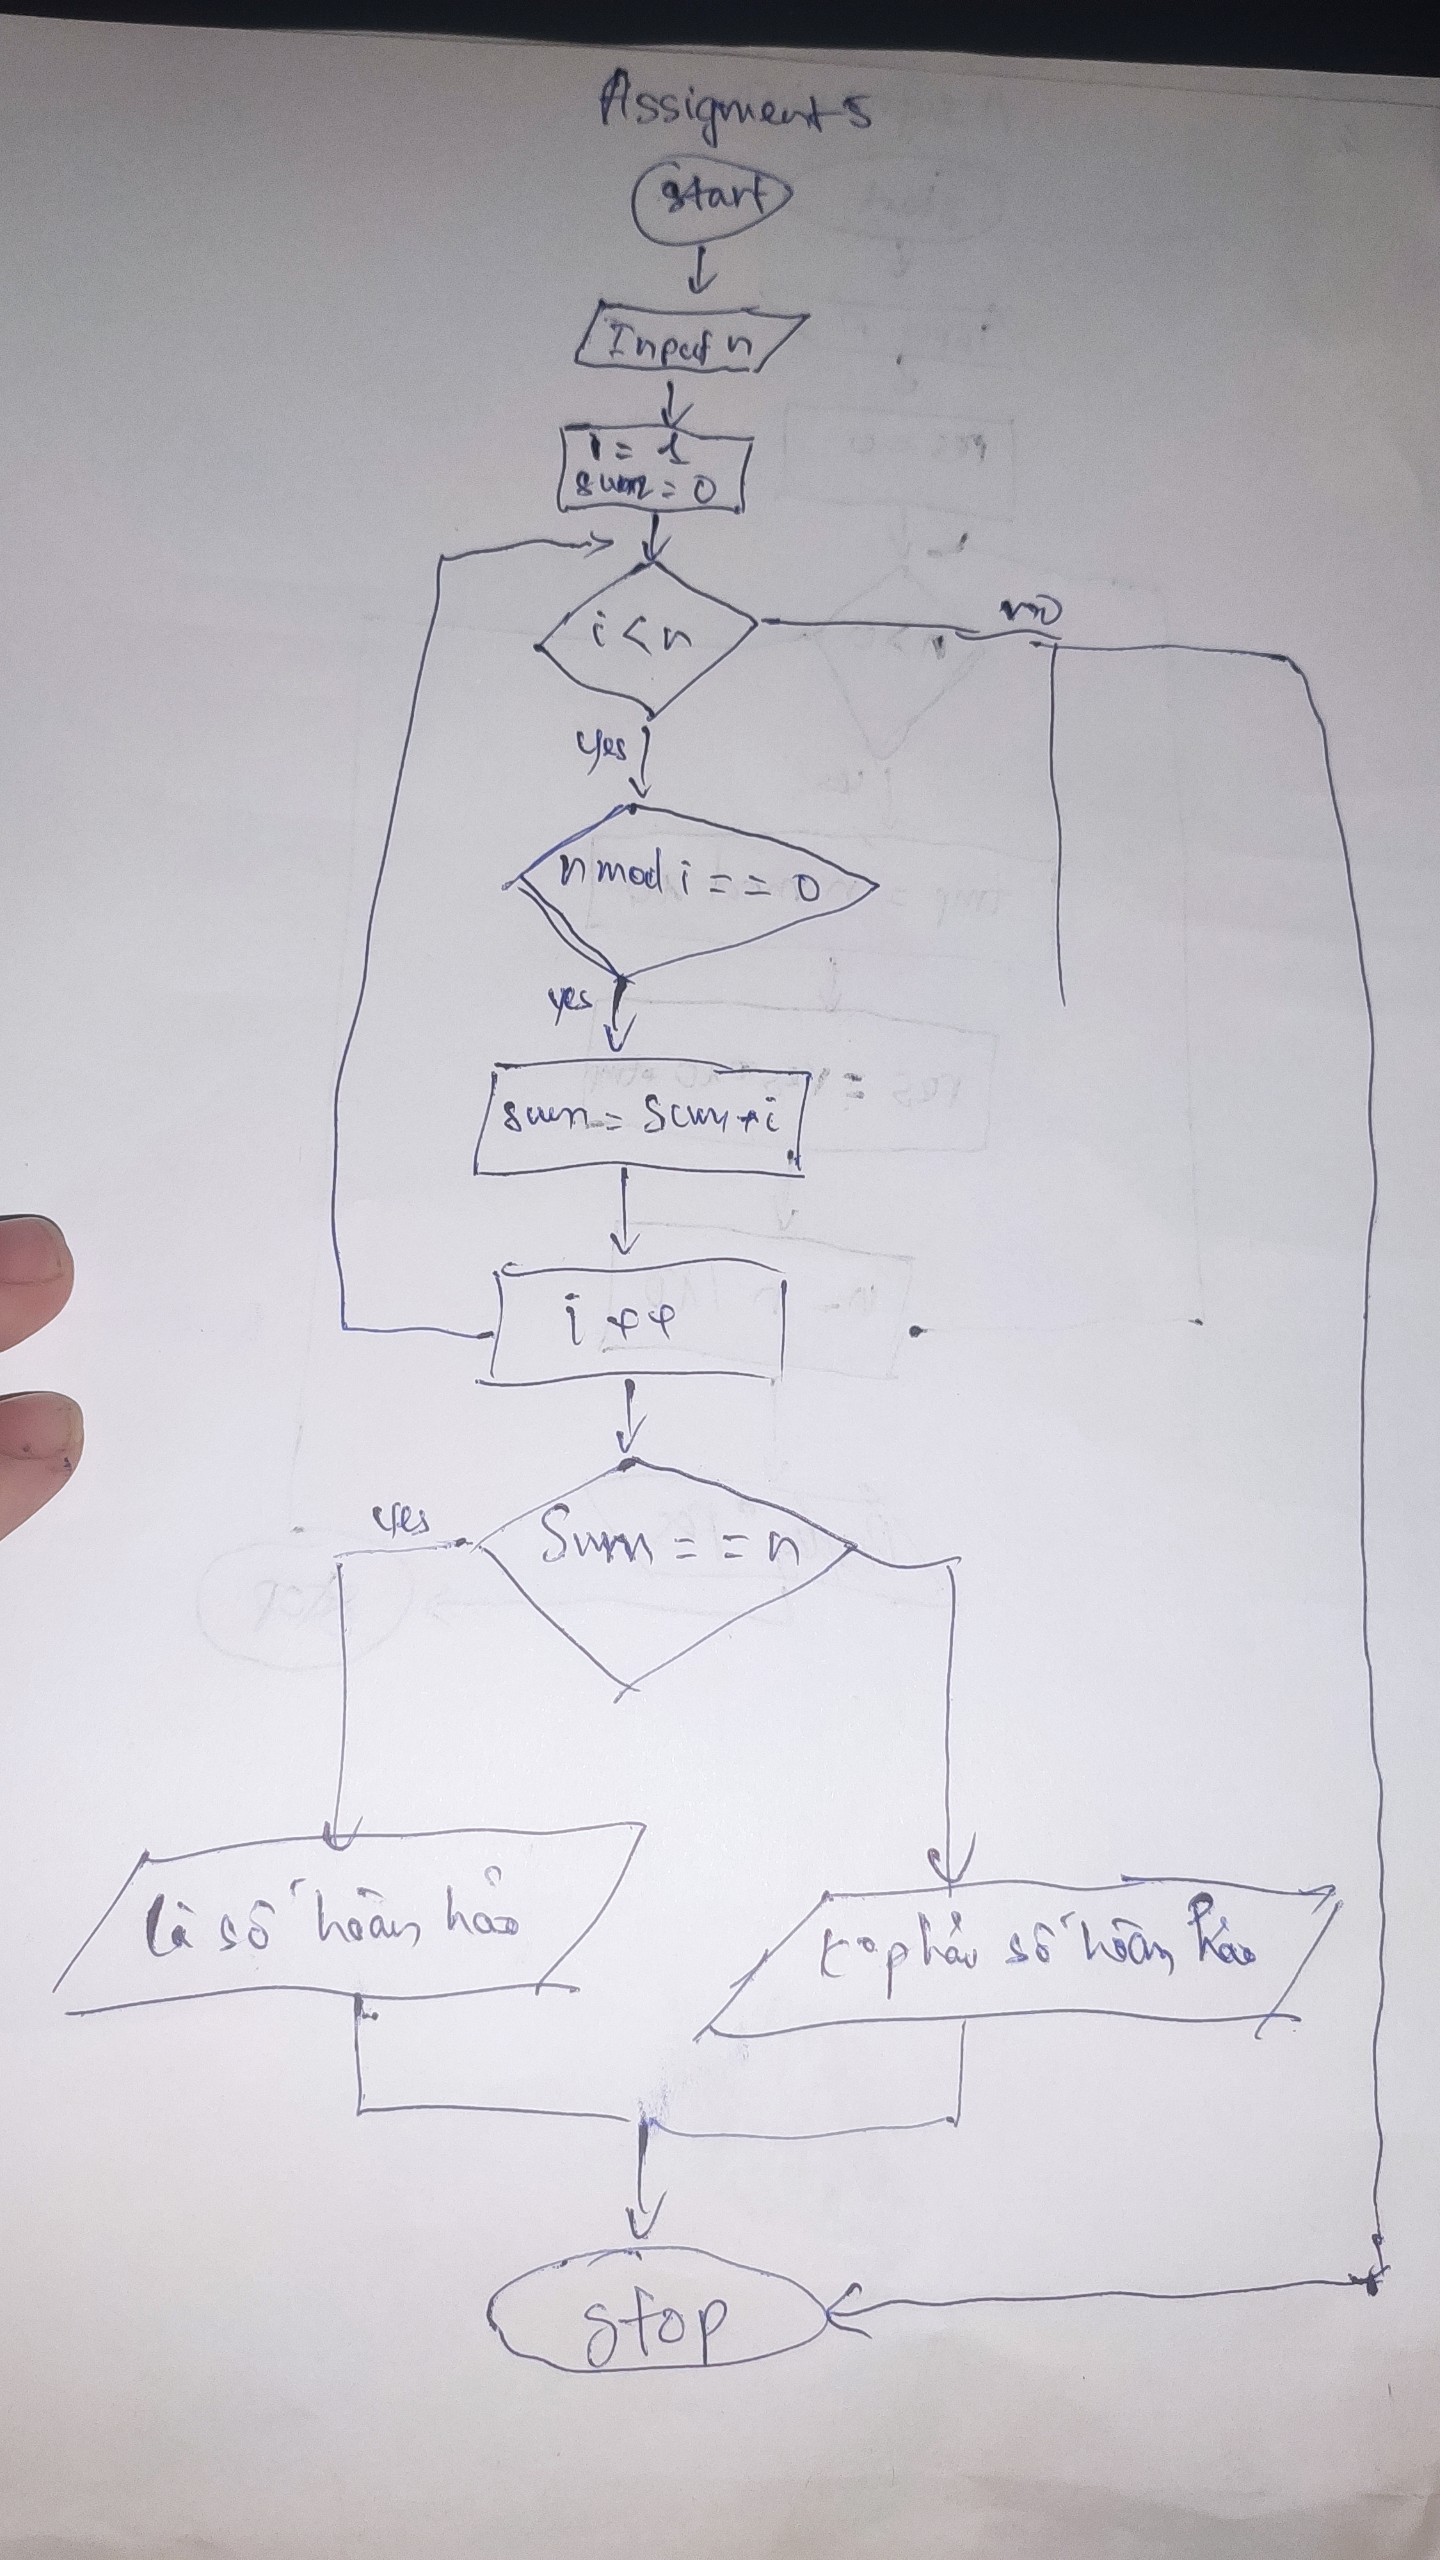 Assigment 5
start
Input n
i = 1
sum = 0
i < n
no
yes
n mod i = = 0
yes
sum = sum + i
i ++
yes
Sum = = n
là số hoàn hảo
ko phải số hoàn hảo
stop